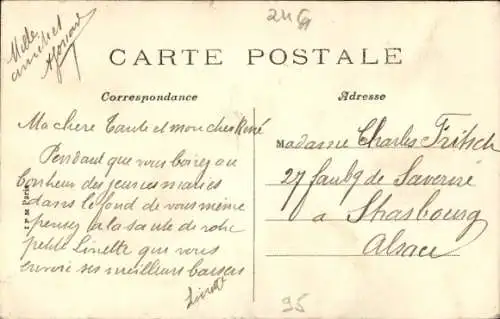 Mille
amitiés
CARTE POSTALE
Correspondance
Adresse
Ma chere Tante et mon cher René
Pendant que vous boirez au
bonheur des jeunes mariés
dans le fond de vous même
pensez a la santé de votre
petite Linette que vous
envoie ses meilleurs baisers
Linette
I P M Paris
Madame Charles Fritsch
27 faubg de Saverne
a Strasbourg
Alsace
95